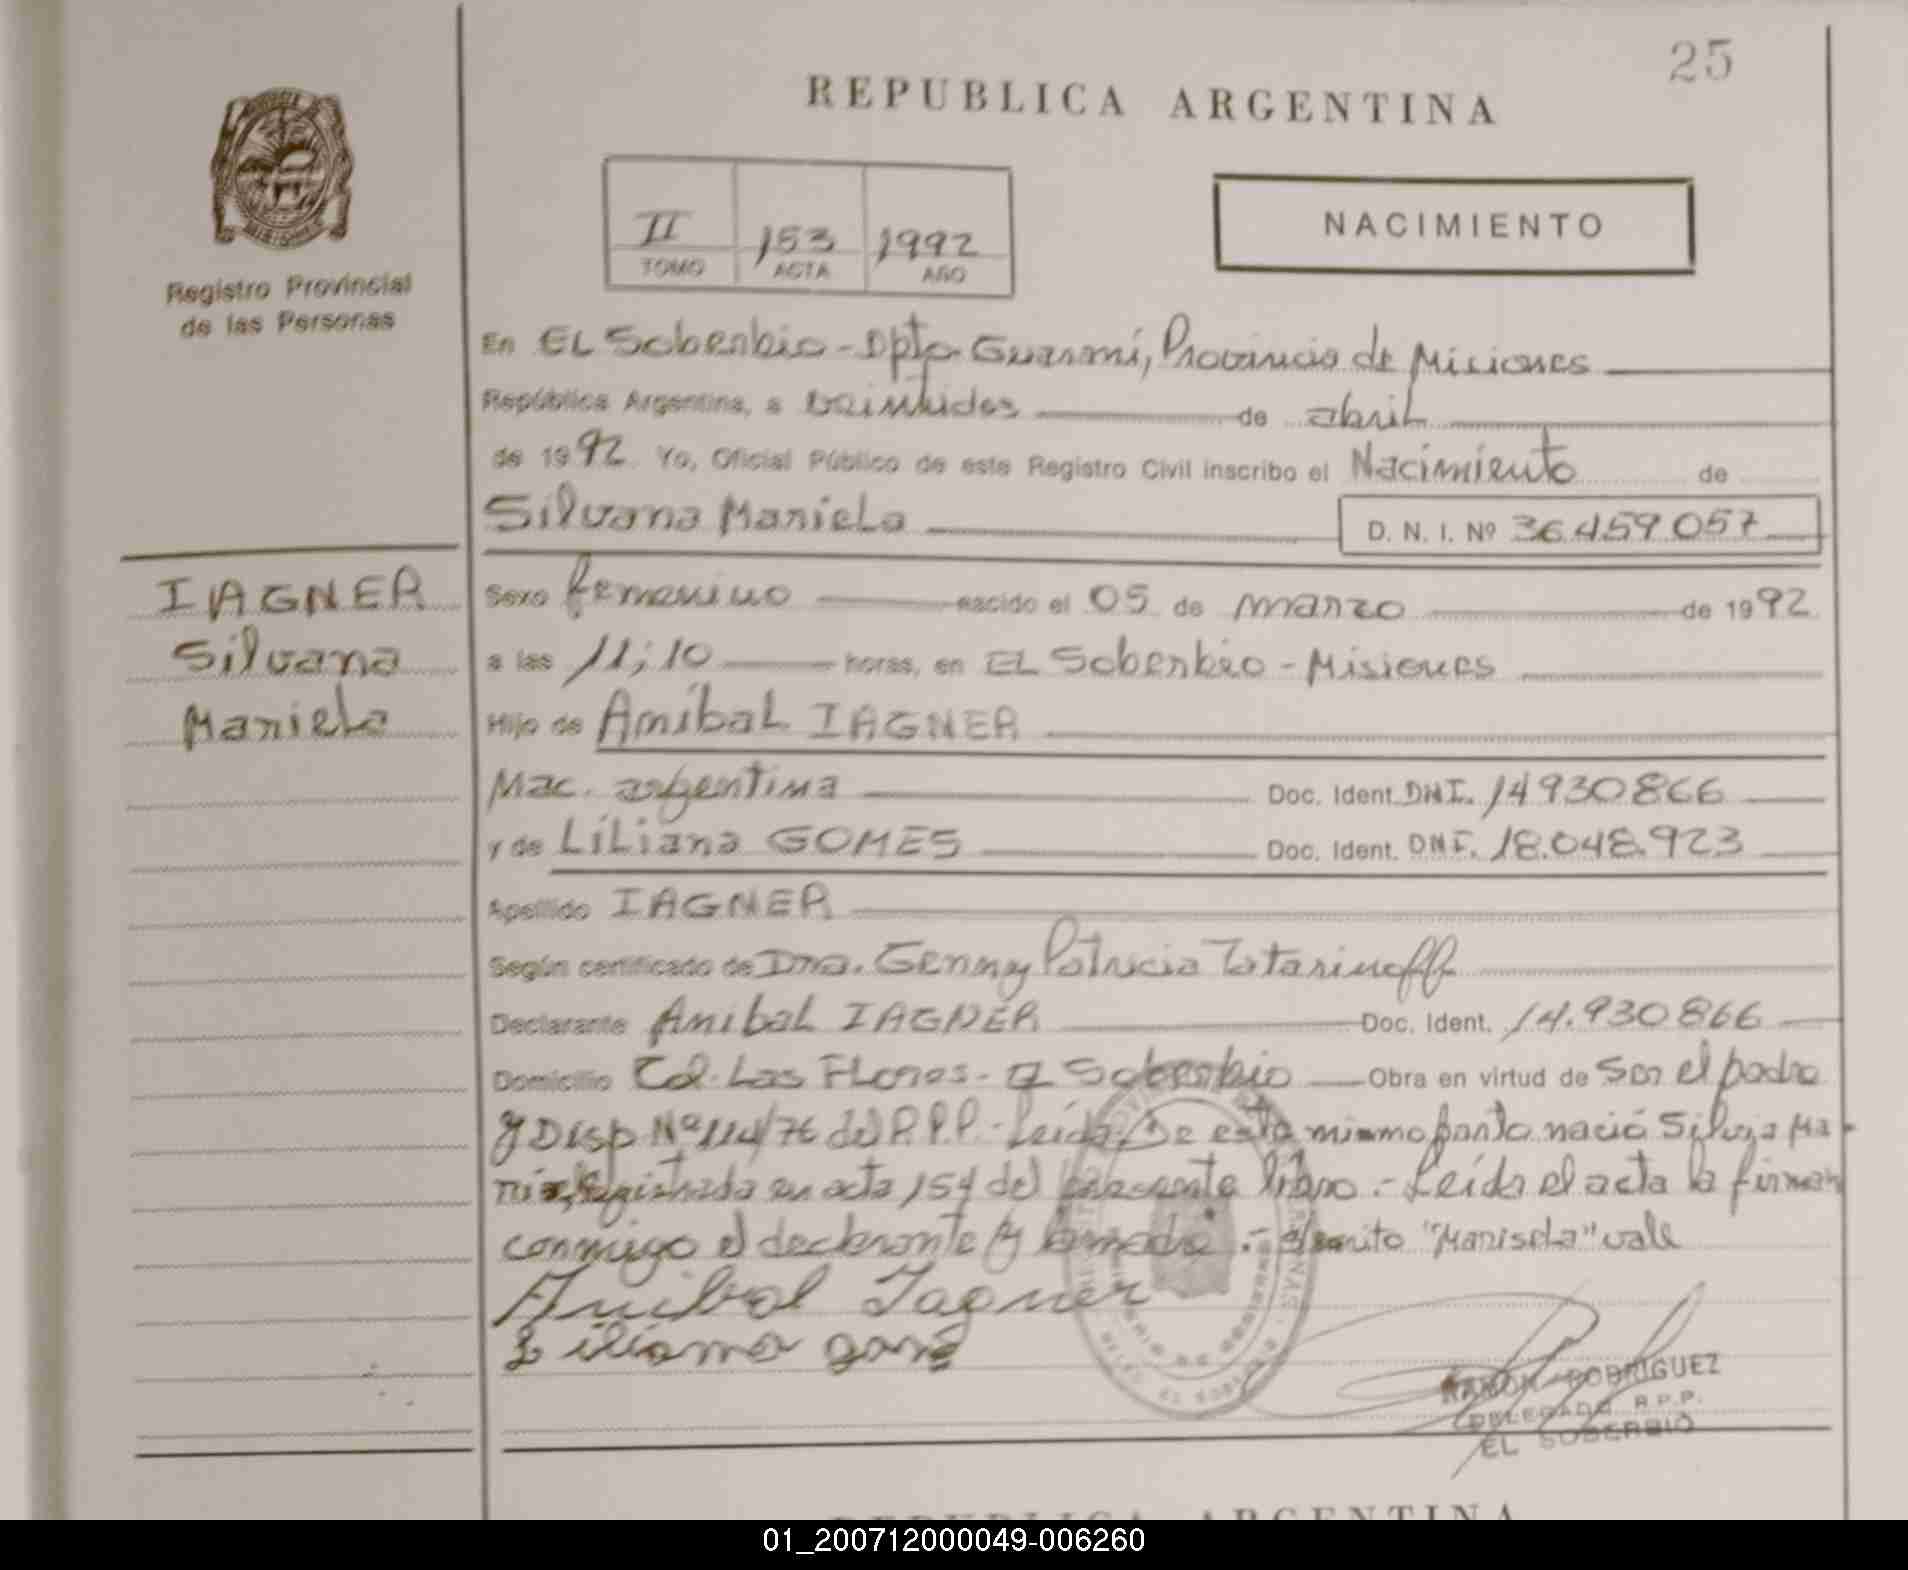 25
REPUBLICA ARGENTINA
NACIMIENTO
II 153 1992
TOMO ACTA AÑO
Registro Provincial
de las Personas
En EL Soberbio - Dpto. Guaraní, Provincia de Misiones
República Argentina, a veintidos de abril
de 1992 Yo, Oficial Público de este Registro Civil inscribo el Nacimiento de
Silvana Mariela D. N. I. Nº 36.459.057
IAGNER
Silvana
Mariela
Sexo femenino nacido el 05 de marzo de 1992
a las 11;10 horas, en EL Soberbio - Misiones
Hijo de Anibal IAGNER
Nac. argentina Doc. Ident. DNI. 14930866
y de Liliana GOMES Doc. Ident. DNI. 18.048.923
Apellido IAGNER
Según certificado de Dra. Genny Patricia Tatarinoff
Declarante Anibal IAGNER Doc. Ident. 14.930866
Domicilio Col. Las Flores - El Soberbio Obra en virtud de Ser el padre
y Disp. Nº 114/76 del R.P.P. - Leída. De este mismo parto nació Silvia Ma-
ria, Registrada en acta 154 del presente libro. - Leída el acta la firman
conmigo el declarante y la madre. - "Marisela" vale
Anibal Iagner
Liliana
RAMON RODRIGUEZ
DELEGADO R.P.P.
EL SOBERBIO
REPUBLICA ARGENTINA
01_200712000049-006260